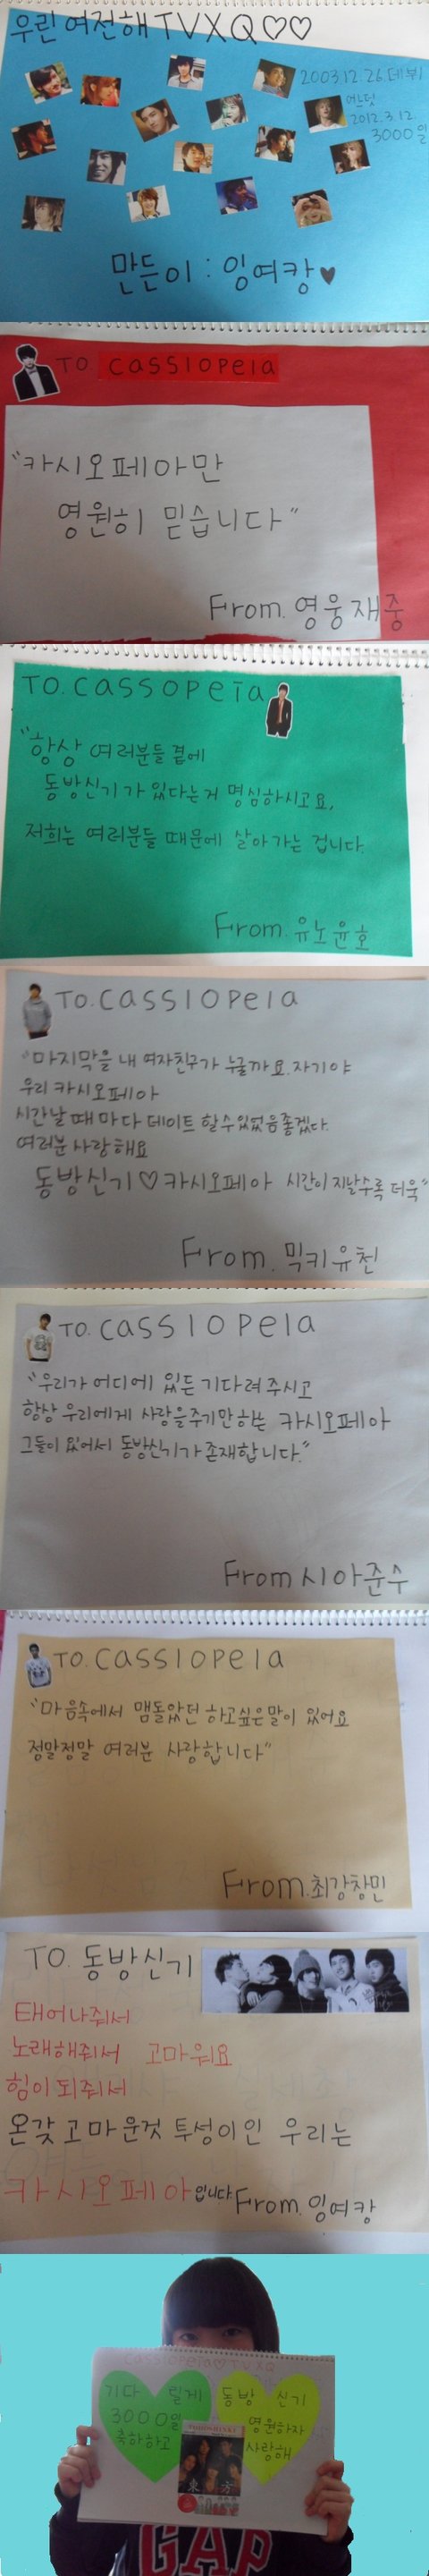 우린 여전해 TVXQ♡♡
2003.12.26.데뷔
어느덧
2012.3.12.
3000일
만든이 : 잉여캉♥
TO. cassiopeia
"카시오페아만
영원히 믿습니다"
From. 영웅재중
TO. cassopeia
"항상 여러분들 곁에
동방신기가 있다는거 명심하시고요,
저희는 여러분들 때문에 살아가는 겁니다.
From. 유노윤호
TO. cassiopeia
"마지막을 내 여자친구가 누굴까요. 자기야
우리 카시오페아
시간날 때마다 데이트 할수있었음좋겠다.
여러분 사랑해요
동방신기♡카시오페아 시간이 지날수록 더욱"
From. 믹키유천
TO. cassiopeia
"우리가 어디에 있든 기다려 주시고
항상 우리에게 사랑을주기만하는 카시오페아
그들이 있어서 동방신기가 존재합니다."
From 시아준수
TO. cassiopeia
"마음속에서 맴돌았던 하고싶은말이 있어요
정말정말 여러분 사랑합니다"
From. 최강창민
TO. 동방신기
태어나줘서
노래해줘서 고마워요
힘이 되줘서
온갖 고마운것 투성이인 우리는
카시오페아입니다. From. 잉여캉
cassiopeia♡TVXQ
기다릴게
3000일
축하하고
동방신기
영원하자
사랑해
TOHOSHINKI
東方
GAP